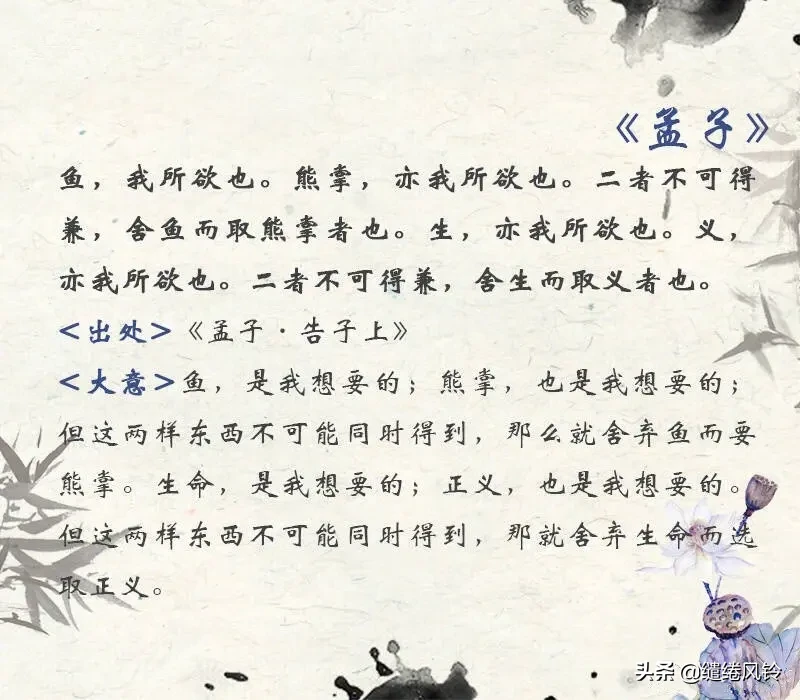 《孟子》
鱼，我所欲也。熊掌，亦我所欲也。二者不可得
兼，舍鱼而取熊掌者也。生，亦我所欲也。义，
亦我所欲也。二者不可得兼，舍生而取义者也。
<出处>《孟子·告子上》
<大意>鱼，是我想要的；熊掌，也是我想要的；
但这两样东西不可能同时得到，那么就舍弃鱼而要
熊掌。生命，是我想要的；正义，也是我想要的。
但这两样东西不可能同时得到，那就舍弃生命而选
取正义。
头条 @缱绻风铃